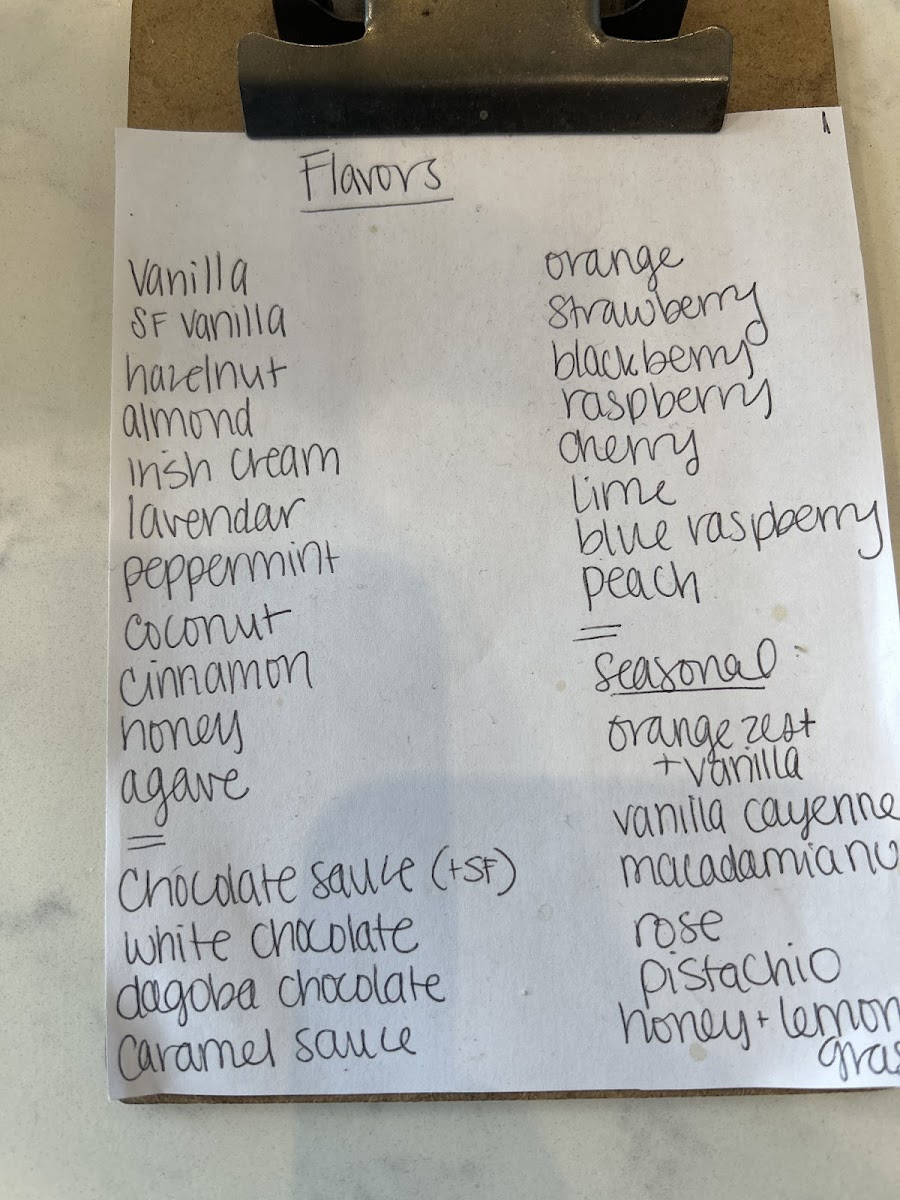 Flavors
vanilla
SF vanilla
hazelnut
almond
Irish cream
lavendar
peppermint
coconut
cinnamon
honey
agave
chocolate sauce (+SF)
white chocolate
dagoba chocolate
caramel sauce
orange
strawberry
blackberry
raspberry
cherry
Lime
blue raspberry
peach
Seasonal
orange zest
+ vanilla
vanilla cayenne
macadamia nu
rose
pistachio
honey + lemon
gras